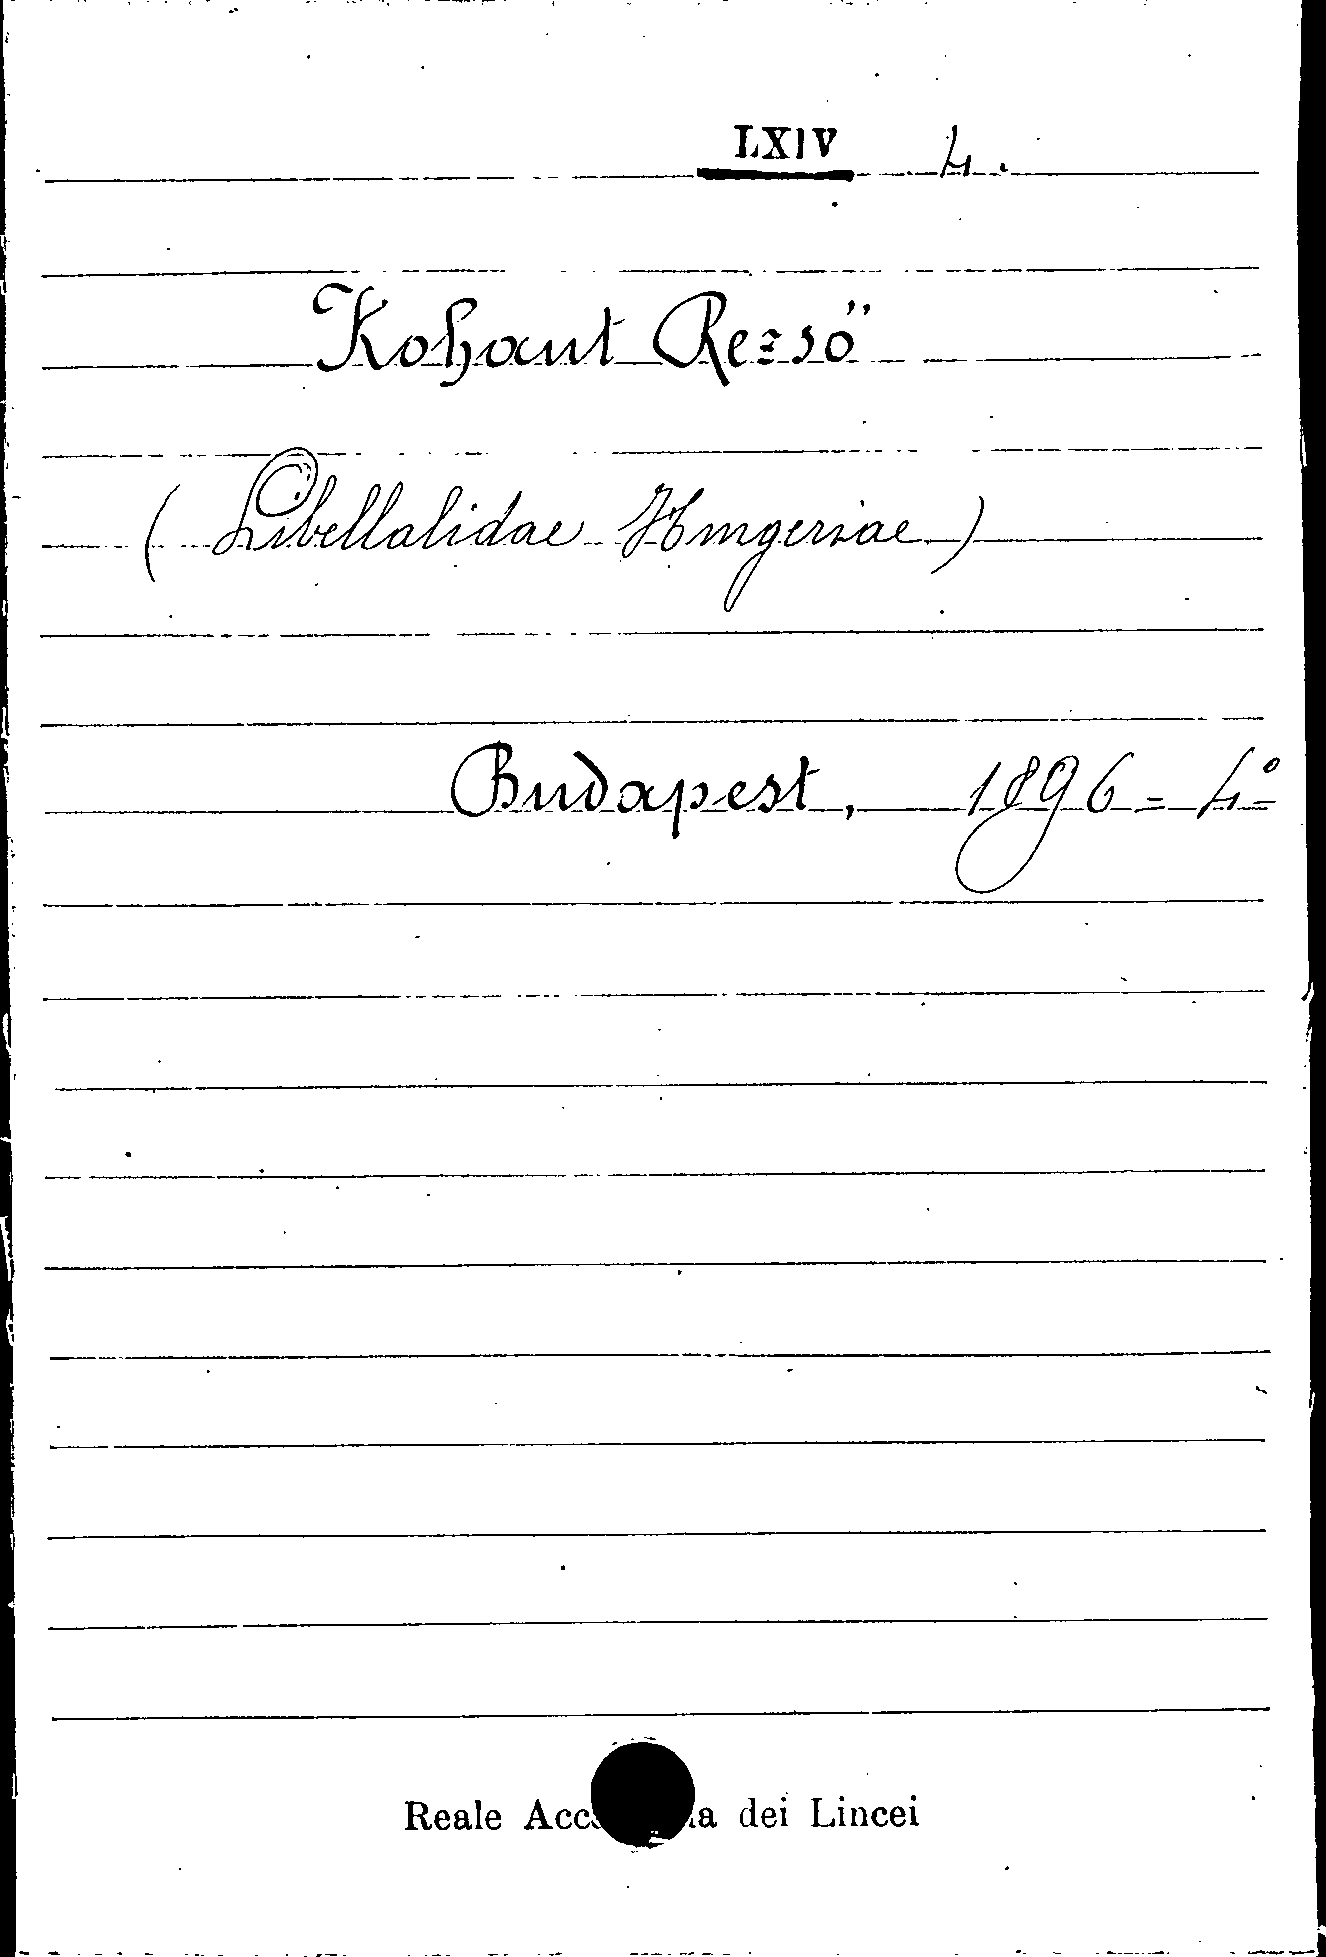 LXIV 4.
Kohaut Rezső
(Libellalidae Hungeriae)
Budapest, 1896 = 4°=
Reale dei Lincei